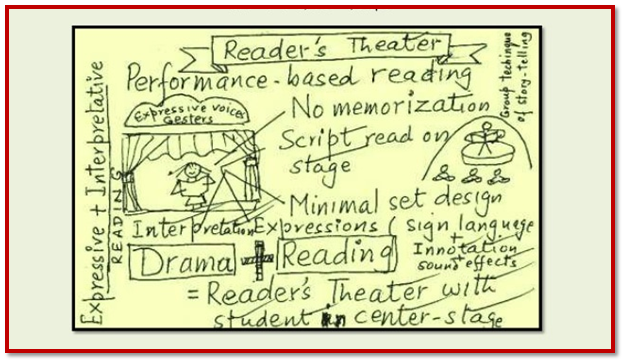 Reader's Theater
Performance-based reading
Expressive voices
Gesters
No memorization
Script read on
stage
Minimal set design
Group techinque
of story-telling
Expressive + Interpretative
READING
Interpretation Expressions / sign language
+
Innotation
+
sound effects
Drama + Reading
= Reader's Theater with
student in center-stage